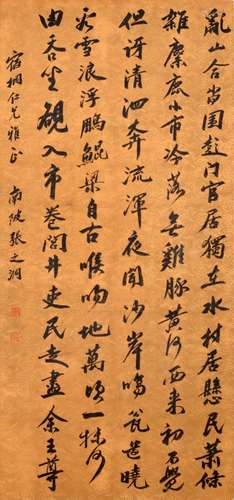 亂山合沓围彭门官居獨在水村居懸民蕭條
雜麋鹿小市冷落無雞豚黃河西來初不覺
但訝清泗奔流渾夜聞沙岸鳴瓮盎曉
看雪浪浮鵬鯤梁自古喉吻地萬頃一抹何
由吞坐觀入市卷閭井吏民走盡余王尊
桐仁兄雅正
南皮張之洞